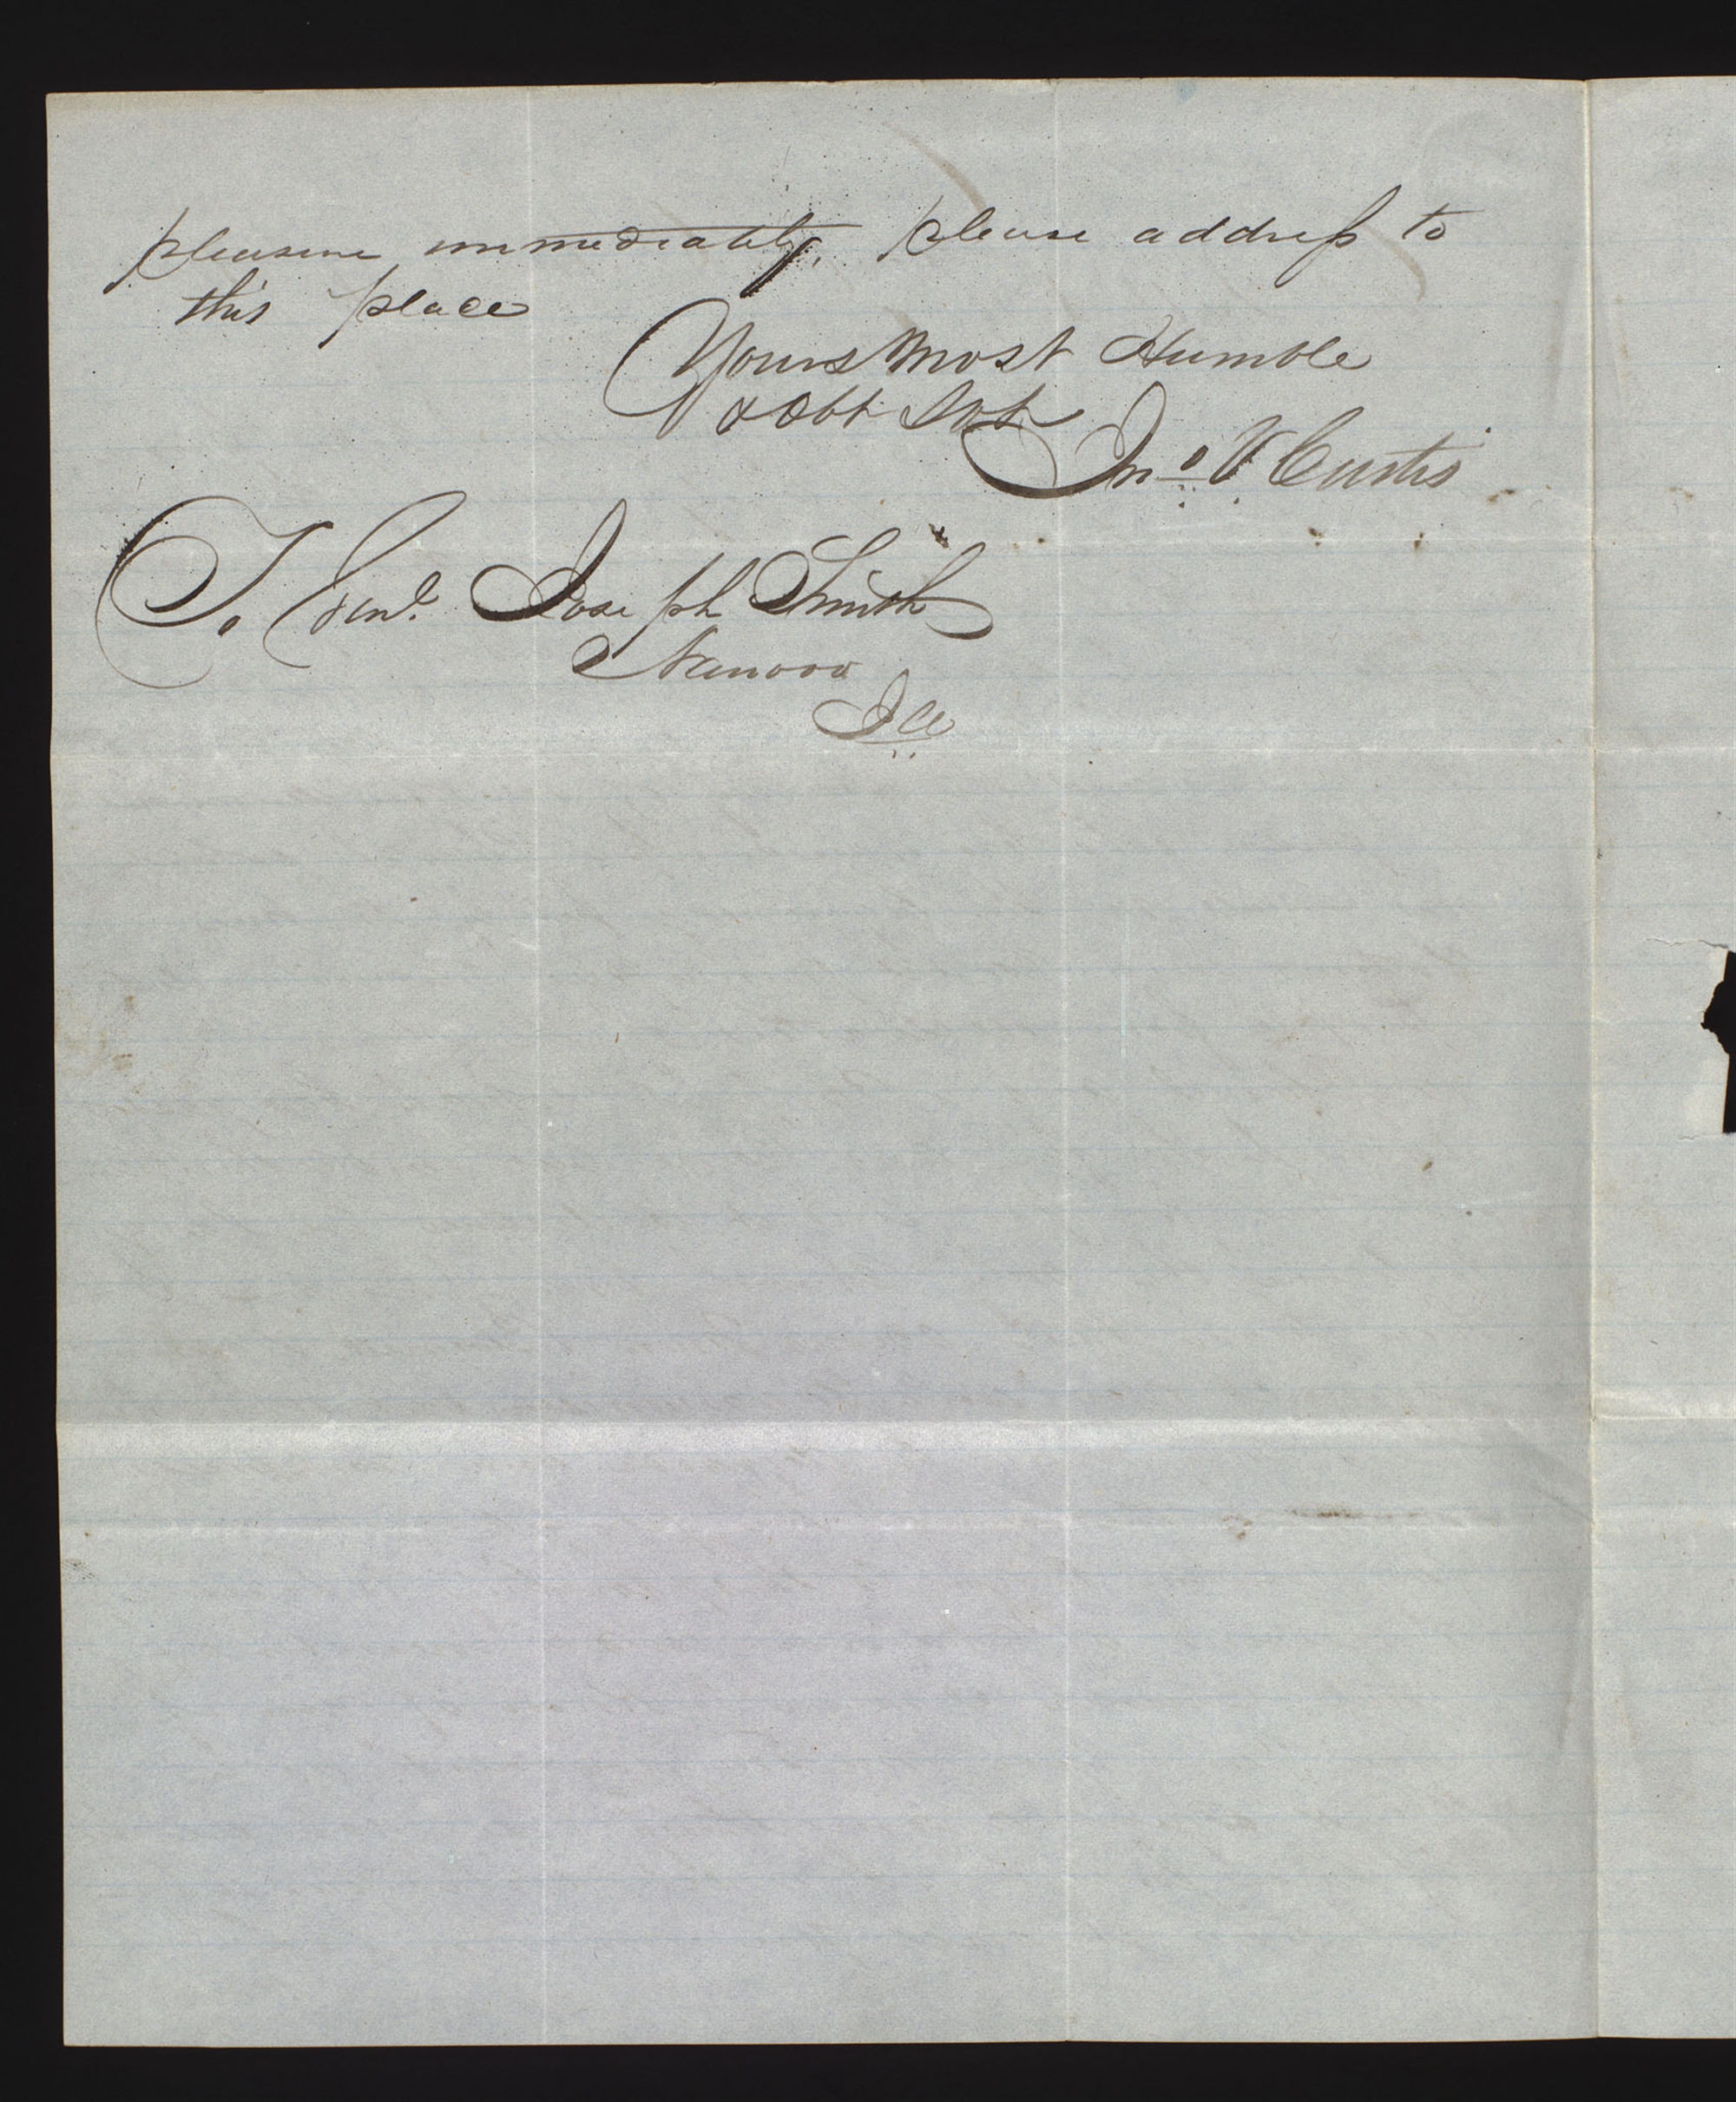 pleasure immediately. please address to
this place
Yours most Humble
& Obt Svt
Jno V Curtis
To Genl. Joseph Smith
Nauvoo
Ill